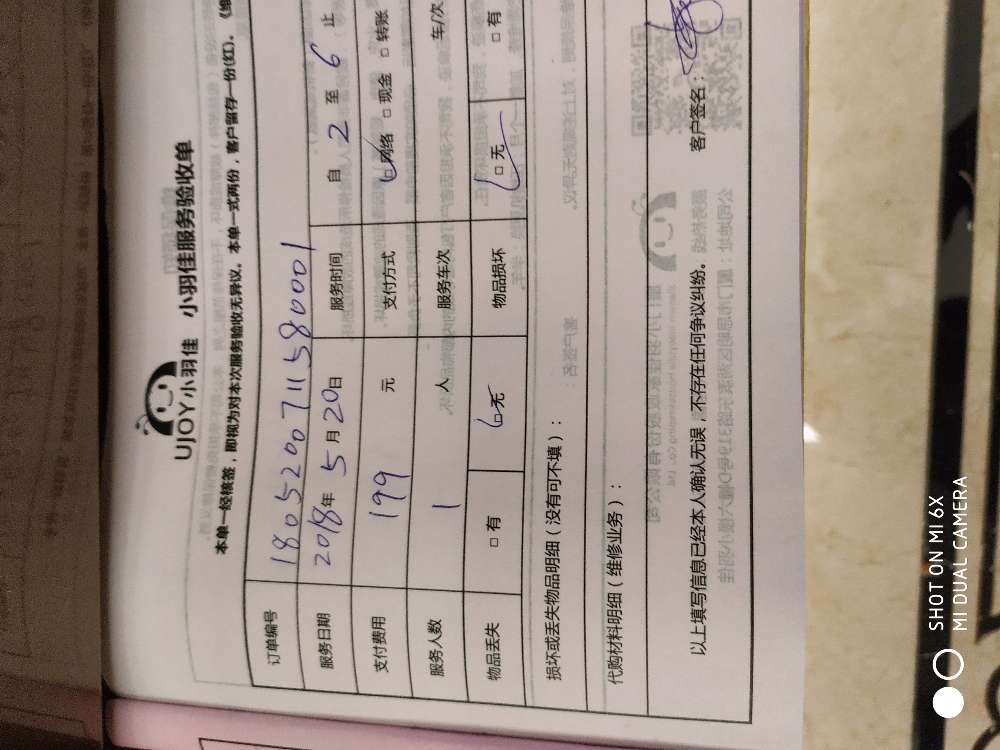 UJOY小羽佳 小羽佳服务验收单
本单一经核签，即视为对本次服务验收无异议。本单一式两份，客户留存一份(红)。
订单编号 1805200711580001
服务日期 2018年 5月20日 服务时间 自 2 至 6 止
支付费用 199 元 支付方式 □网络 □现金 □转账
服务人数 1 人 服务车次 车/次
物品丢失 □有 □无 物品损坏 □无 □有
损坏或丢失物品明细（没有可不填）：
代购材料明细（维修业务）：
以上填写信息已经本人确认无误，不存在任何争议纠纷。 客户签名：
SHOT ON MI 6X
MI DUAL CAMERA